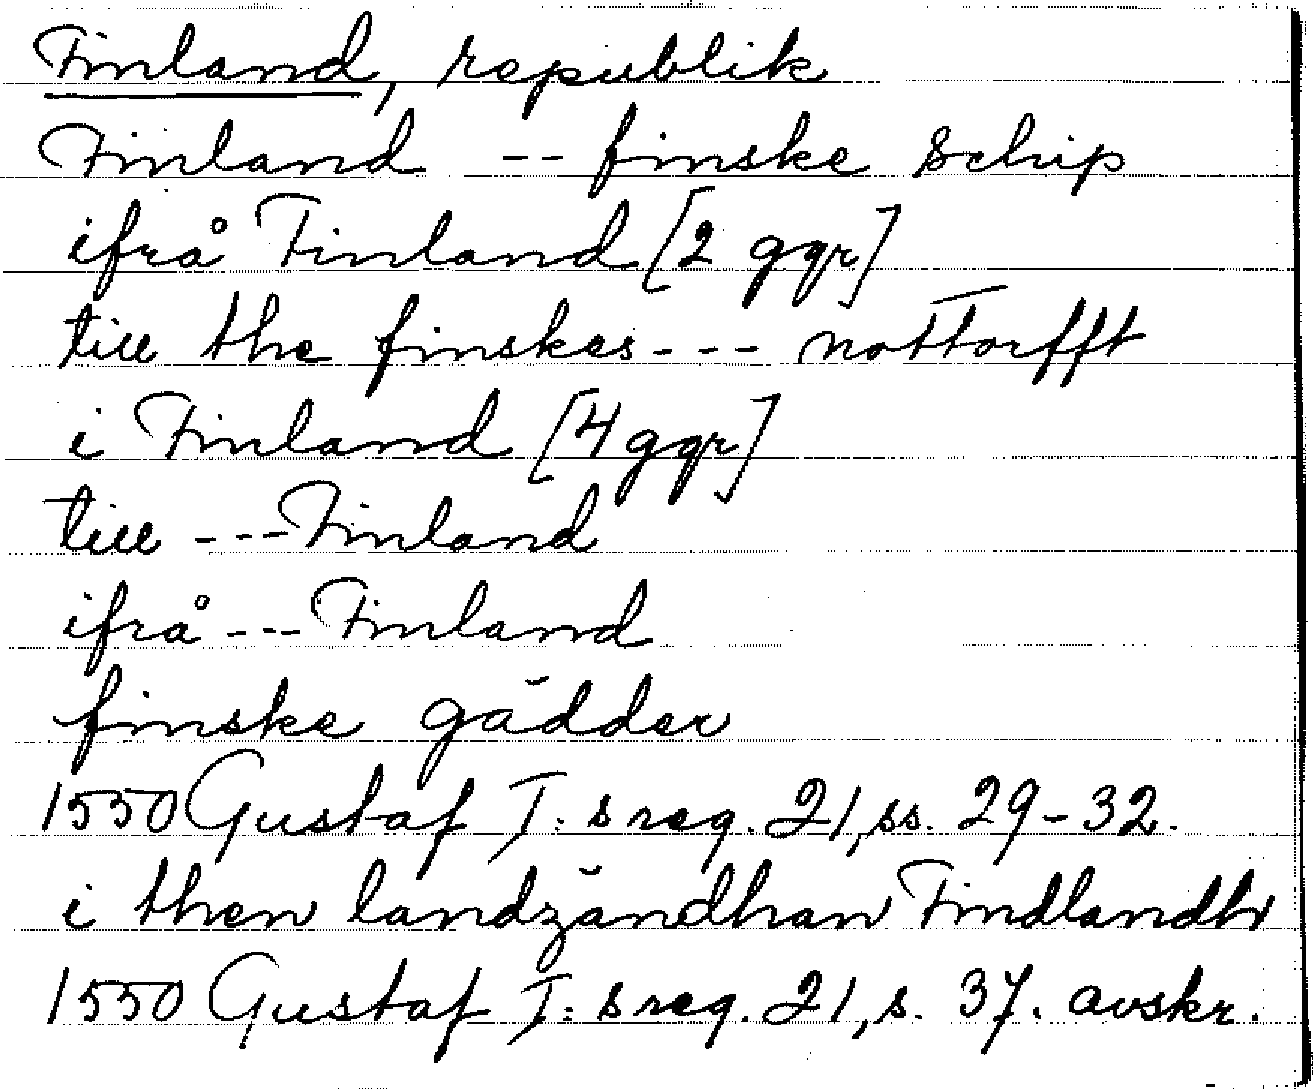 Finland, republik
Finland -- finske schip
ifrå Finland [2 ggr]
till the finskes --- nottorfft
i Finland [4 ggr]
till --- Finland
ifrå --- Finland
finske gädder
1550 Gustaf I:s reg. 21, ss. 29-32.
i then landzändhan Findlandh
1550 Gustaf I:s reg. 21, s. 37. avskr.